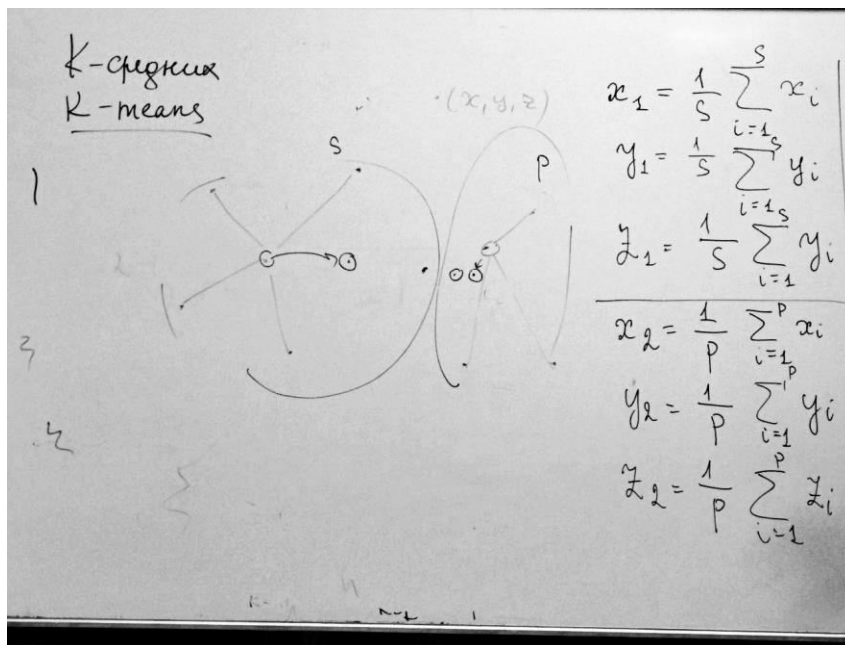 K-средних
K-means
(x, y, z)
S
P
x₁ = 1/S ∑_{i=1}^{S} x_i
y₁ = 1/S ∑_{i=1}^{S} y_i
z₁ = 1/S ∑_{i=1}^{S} y_i
x₂ = 1/P ∑_{i=1}^{P} x_i
y₂ = 1/P ∑_{i=1}^{P} y_i
z₂ = 1/P ∑_{i=1}^{P} z_i